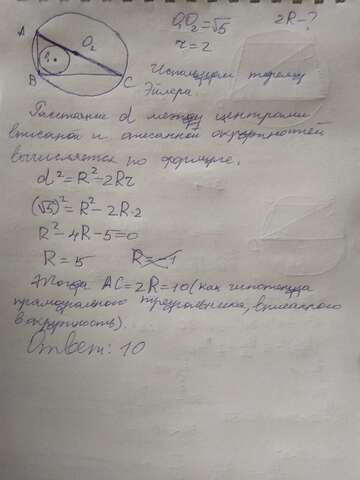 O₁O₂ = √5 2R - ?
r = 2
A
O₂
O₁
B
C
Используем теорему
Эйлера.
Расстояние d между центрами
вписаной и описанной окружностей
вычисляется по формуле.
d² = R² - 2Rr
(√5)² = R² - 2R·2
R² - 4R - 5 = 0
R = 5 R = -1
Тогда AC = 2R = 10 (как гипотенуза
прямоугольного треугольника, вписанного
в окружность).
Ответ: 10